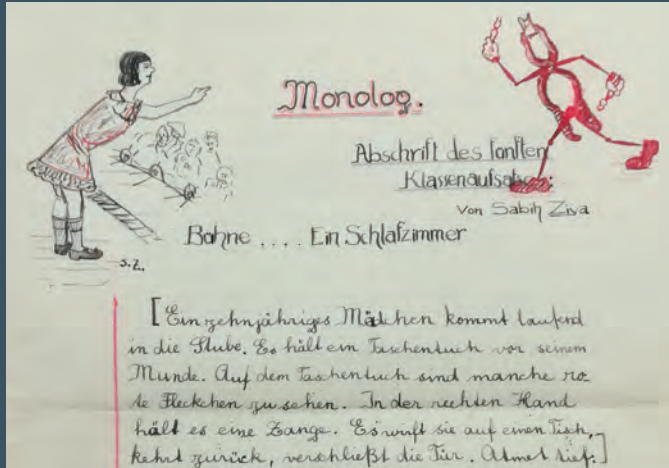 Monolog.
Abschrift des fünften
Klassenaufsatzes:
Von Sabih Ziya
Bühne .... Ein Schlafzimmer
S.Z.
[Ein zehnjähriges Mädchen kommt laufend
in die Stube. Es hält ein Taschentuch vor seinem
Munde. Auf dem Taschentuch sind manche ro-
te Fleckchen zu sehen. In der rechten Hand
hält es eine Zange. Es wirft sie auf einen Tisch,
kehrt zurück, verschließt die Tür. Atmet tief.]